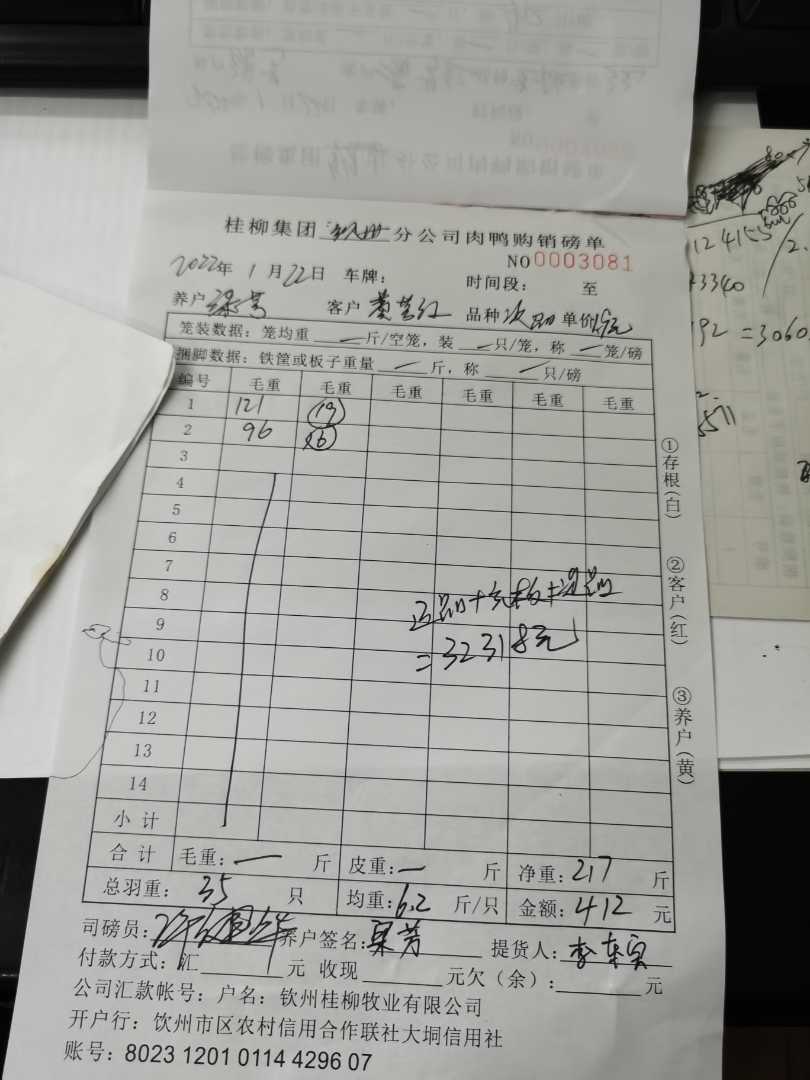 桂柳集团 钦州 分公司肉鸭购销磅单
NO 0003081
2022年 1月22日 车牌： 时间段： 至
养户 梁芳 客户 黄其红 品种 次品 单价 1.9元
笼装数据：笼均重 — 斤/空笼，装 — 只/笼，称 — 笼/磅
捆脚数据：铁筐或板子重量 — 斤，称 — 只/磅
编号 毛重 毛重 毛重 毛重 毛重 毛重
1 121 (19)
2 96 (16)
3
4
5
6
7
8
9
10
11
12
13
14
小计
= 32318元
合计 毛重：— 斤 皮重：— 斤 净重：217 斤
总羽重：35 只 均重：6.2 斤/只 金额：412 元
司磅员： 养户签名：梁芳 提货人：李东宾
付款方式：汇 元 收现 元欠（余）： 元
公司汇款帐号：户名：钦州桂柳牧业有限公司
开户行：饮州市区农村信用合作联社大垌信用社
账号：8023 1201 0114 4296 07
①存根(白)
②客户(红)
③养户(黄)
124155
3340
192 = 3060